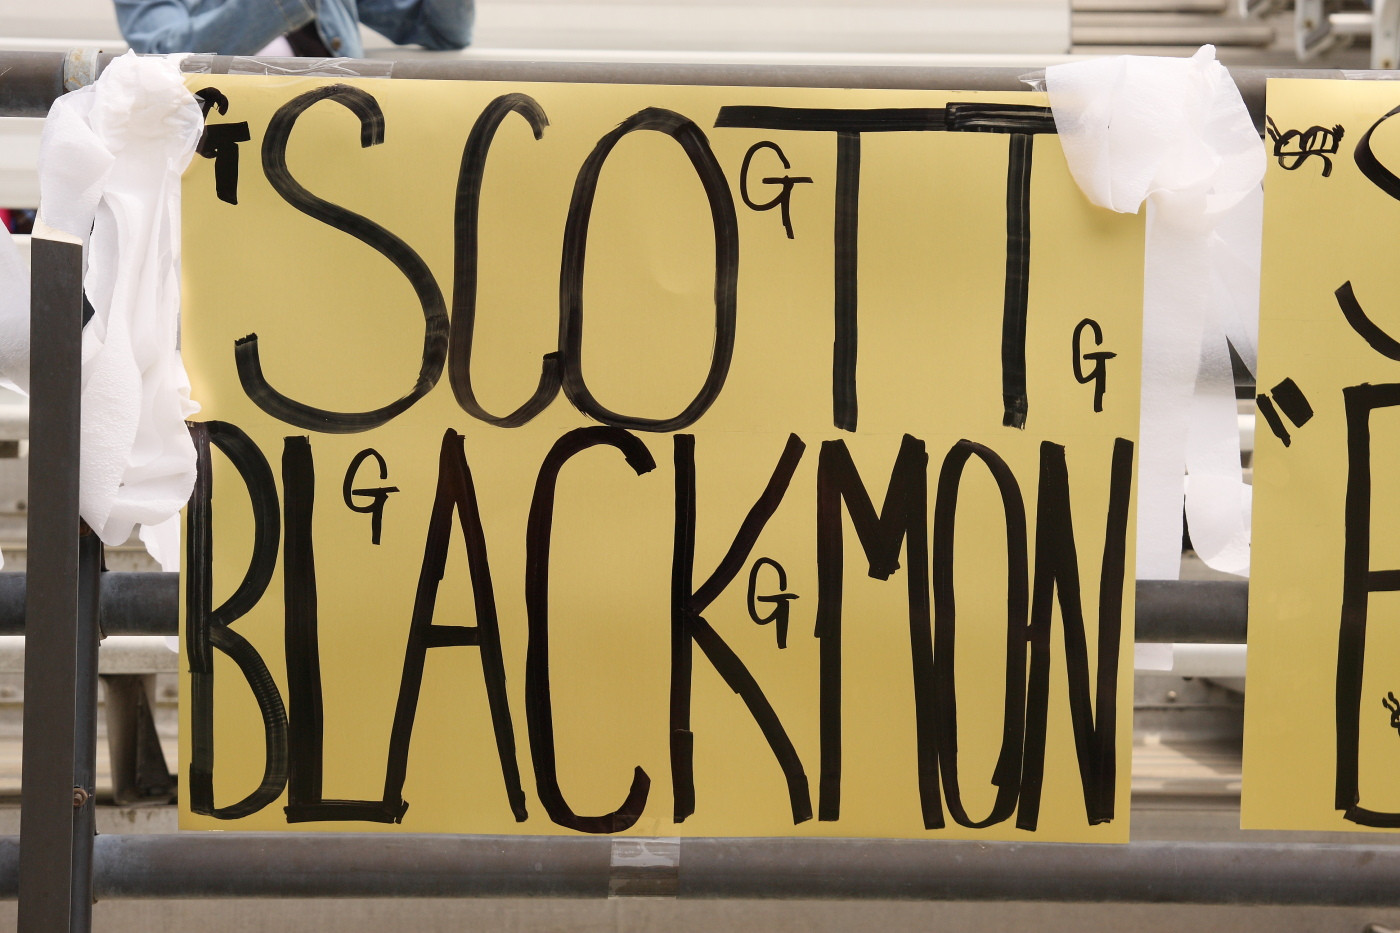 G SCOTT
G
G
BLACKMON
G
G